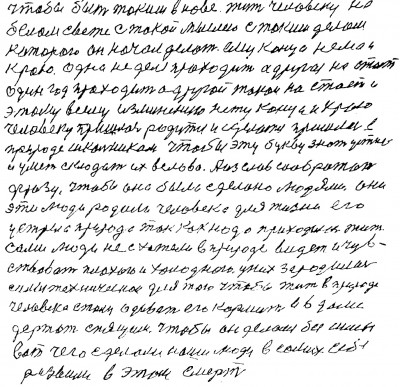 чтобы быт таким внове. жит человеку на
белом свете с такой мыслю с таким делом
которого он начал делат ему конца нема и
краю. Одна неделя проходит а другая настает
один год проходит а другой такой настает и
этому всему изменению нету конца и краю
человеку пришлос родится и сделат пришлос в
природе школникам чтобы эту букву знат учит
и умет складат их в слово. А из слов собрат
фразу, чтобы она была сделано людями. они
эти люди родили человека для жизни его
встретила природа так как надо приходится жит.
Сами люди не схотели в природе видет и чув-
ствоват плохого и холодного. у них зародилас
сила техническая для того чтобы жит в природе
человека стали одеват его кормит и в доме
держат спящим. чтобы он делался без силы
вот чего сделали наши люди в самих себе
развили в этом смерт